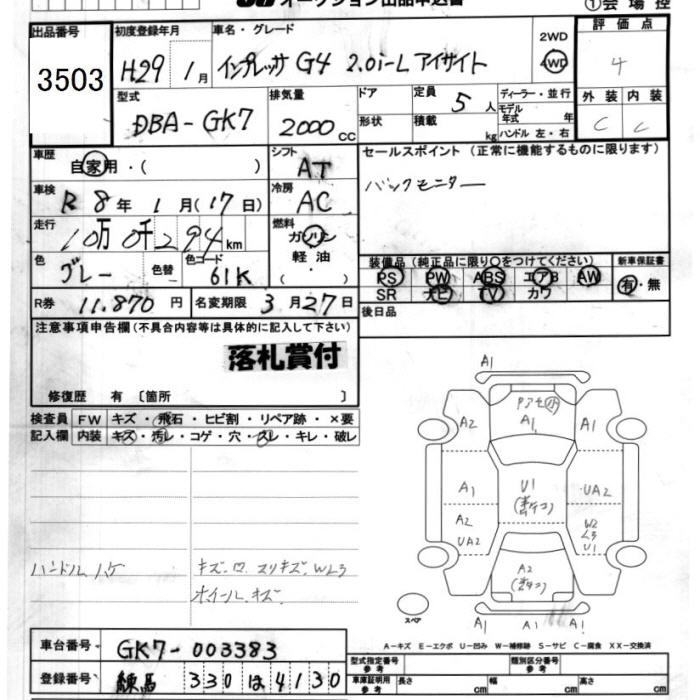 オークション出品申込書
①会場控
出品番号
3503
初度登録年月
H29 1月
車名・グレード
インプレッサ G4 2.0i-L アイサイト
2WD
4WD
評価点
4
外装 内装
C C
型式
DBA-GK7
排気量
2000 CC
ドア
形状
定員 5人
積載 kg
ディーラー・並行
モデル年式 年
ハンドル 左・右
車歴
自家用・( )
シフト
AT
セールスポイント (正常に機能するものに限ります)
バックモニター
車検
R 8年 1月(17日)
冷房
AC
走行
10万0千294km
燃料
ガソリン
軽油
・( )
色
グレー
色替
色コード
61K
装備品(純正品に限り○をつけてください)
PS PW ABS エアB AW
SR ナビ TV カワ
新車保証書
有・無
R券 11,870円
名変期限 3月27日
後日品
注意事項申告欄(不具合内容等は具体的に記入して下さい)
落札賞付
修復歴 有〔箇所 〕
検査員記入欄
FW キズ・飛石・ヒビ割・リペア跡・×要
内装 キズ・汚レ・コゲ・穴・スレ・キレ・破レ
A1
A2 A1 A1
A1 U1 UA2
A2 UA2
W2 L3 U1
A2
A1 A1 A1
スペア
ハンドルハゲ
ホイールキズ
A-キズ E-エクボ U-凹み W-補修跡 S-サビ C-腐食 XX-交換済
車台番号 GK7-003383
登録番号 練馬 330 は 4130
型式指定番号 参考
類別区分番号 参考
車庫証明用 参考
長さ cm 幅 cm 高さ cm